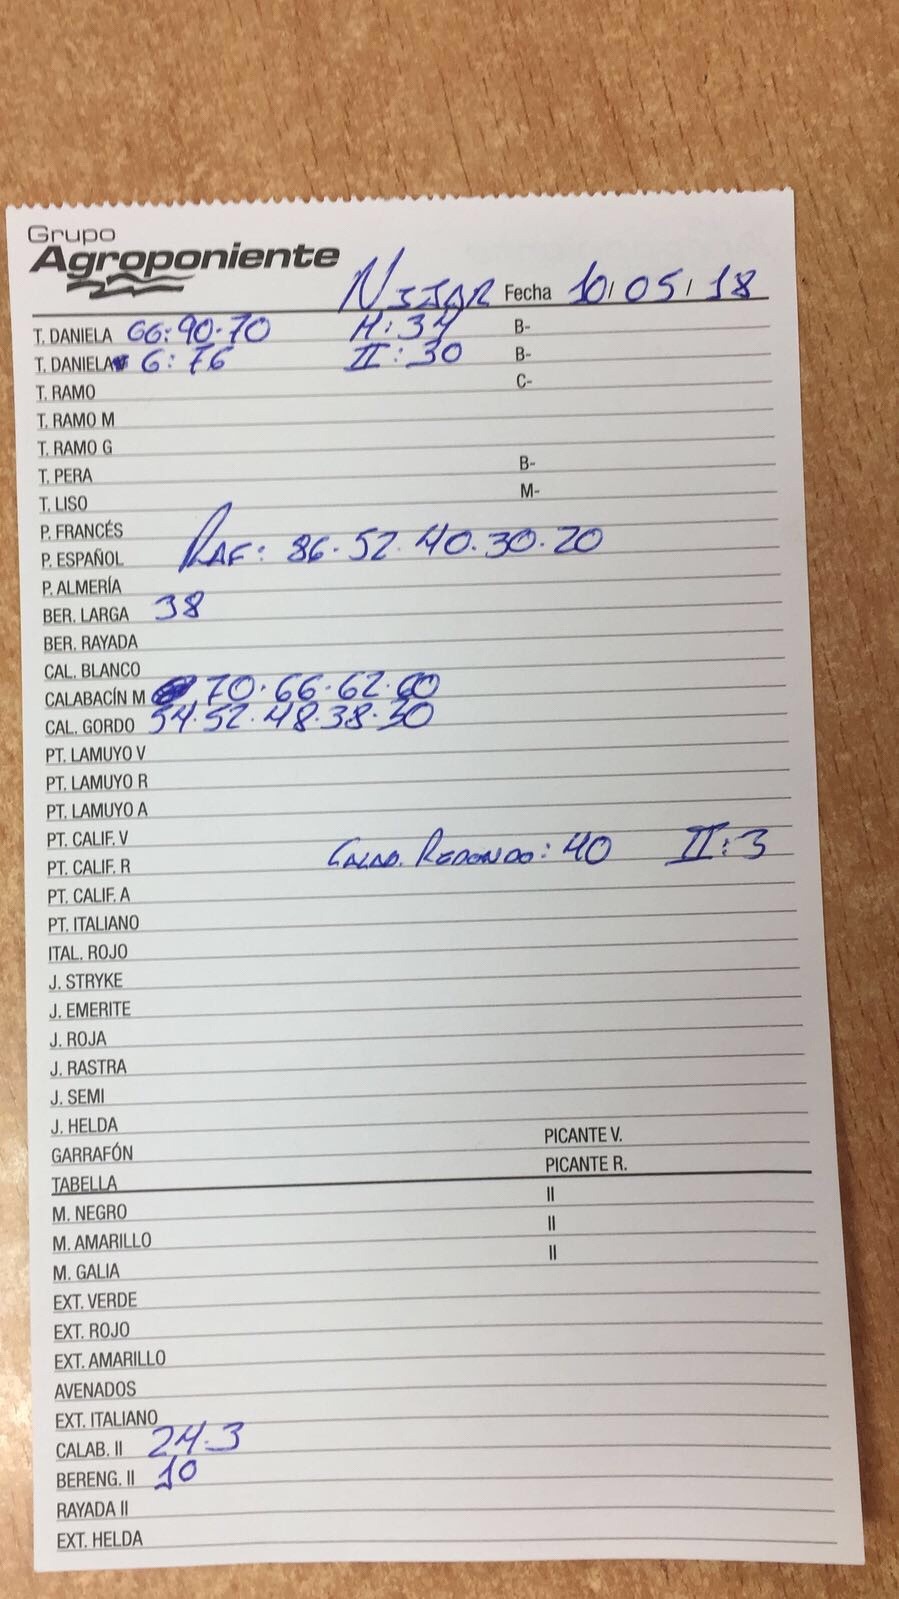 Grupo
Agroponiente
NIJAR Fecha 10/05/18
T. DANIELA GG: 90·70 M: 34 B-
T. DANIELA G: 76 II: 30 B-
T. RAMO C-
T. RAMO M
T. RAMO G
T. PERA B-
T. LISO M-
P. FRANCÉS
P. ESPAÑOL RAF: 86·52·40·30·20
P. ALMERÍA
BER. LARGA 38
BER. RAYADA
CAL. BLANCO
CALABACÍN M 70·66·62·60
CAL. GORDO 54·52·48·38·30
PT. LAMUYO V
PT. LAMUYO R
PT. LAMUYO A
PT. CALIF. V
PT. CALIF. R CALAB. REDONDO: 40 II: 3
PT. CALIF. A
PT. ITALIANO
ITAL. ROJO
J. STRYKE
J. EMERITE
J. ROJA
J. RASTRA
J. SEMI
J. HELDA
GARRAFÓN PICANTE V.
TABELLA PICANTE R.
M. NEGRO II
M. AMARILLO II
M. GALIA II
EXT. VERDE
EXT. ROJO
EXT. AMARILLO
AVENADOS
EXT. ITALIANO
CALAB. II 24·3
BERENG. II 10
RAYADA II
EXT. HELDA